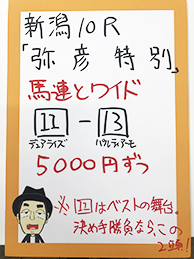 新潟10R
「弥彦特別」
馬連とワイド
11－13
デュアライズ ハウルディアーモ
5000円ずつ
※11はベストの舞台。
決め手勝負ならこの
2頭!